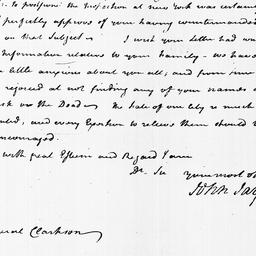 to postpone the Inspection at New York was certain
perfectly approves of your having countermanded
on that Subject I wish your Letter had
Information relative to your Family - We have
a little anxious about you all; and from
rejoiced at not finding any of your names
on the Dead The State of our City is much
and every Exertion to relieve them should
encouraged.
with great Esteem and Regard I am
Dr. Sir your most ob
John Jay
Clarkson